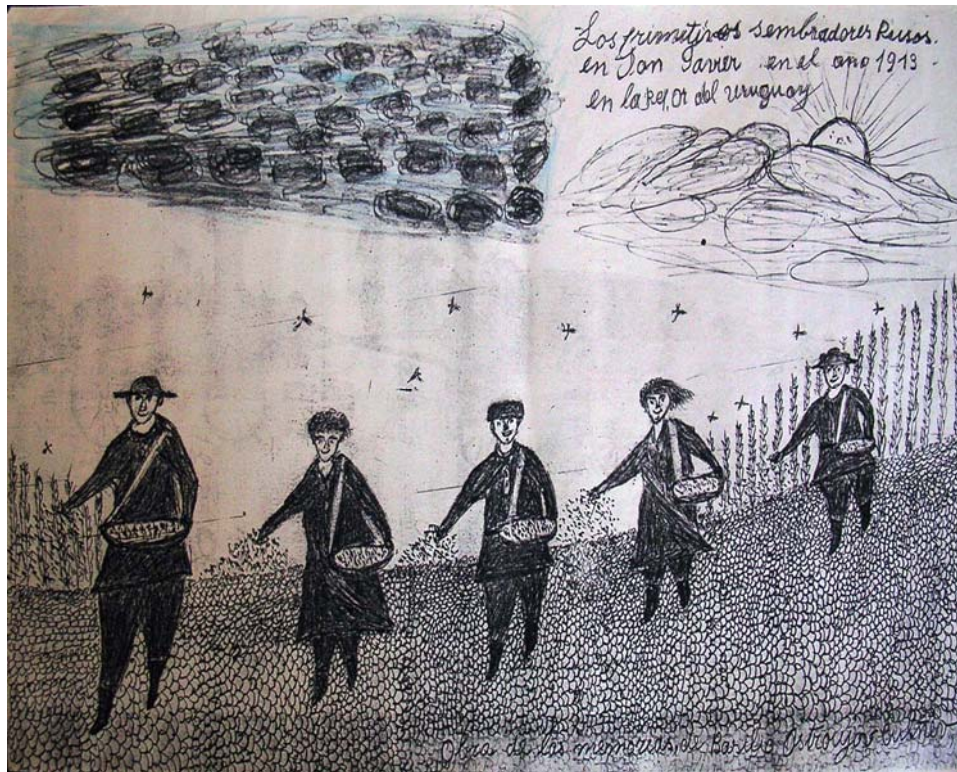 Los primetivos sembradores Rusos.
en San Javier en el año 1913 -
en la Rep, Or del Uruguay
Obra de las memorias, de Basilio Ostroujov